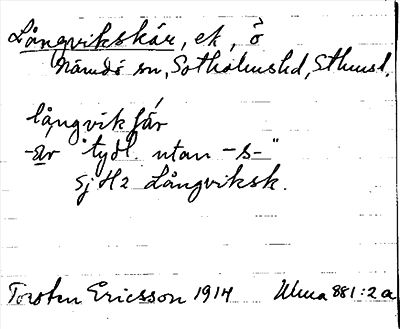 Långvikskär, ek, ö
Nämdö sn, Sotholms hd, Sthmsl.
långvikʃär
-är "tydl. utan -s-"
Sj H2 Långviksk.
Torsten Ericsson 1914 Ulma 881:2a